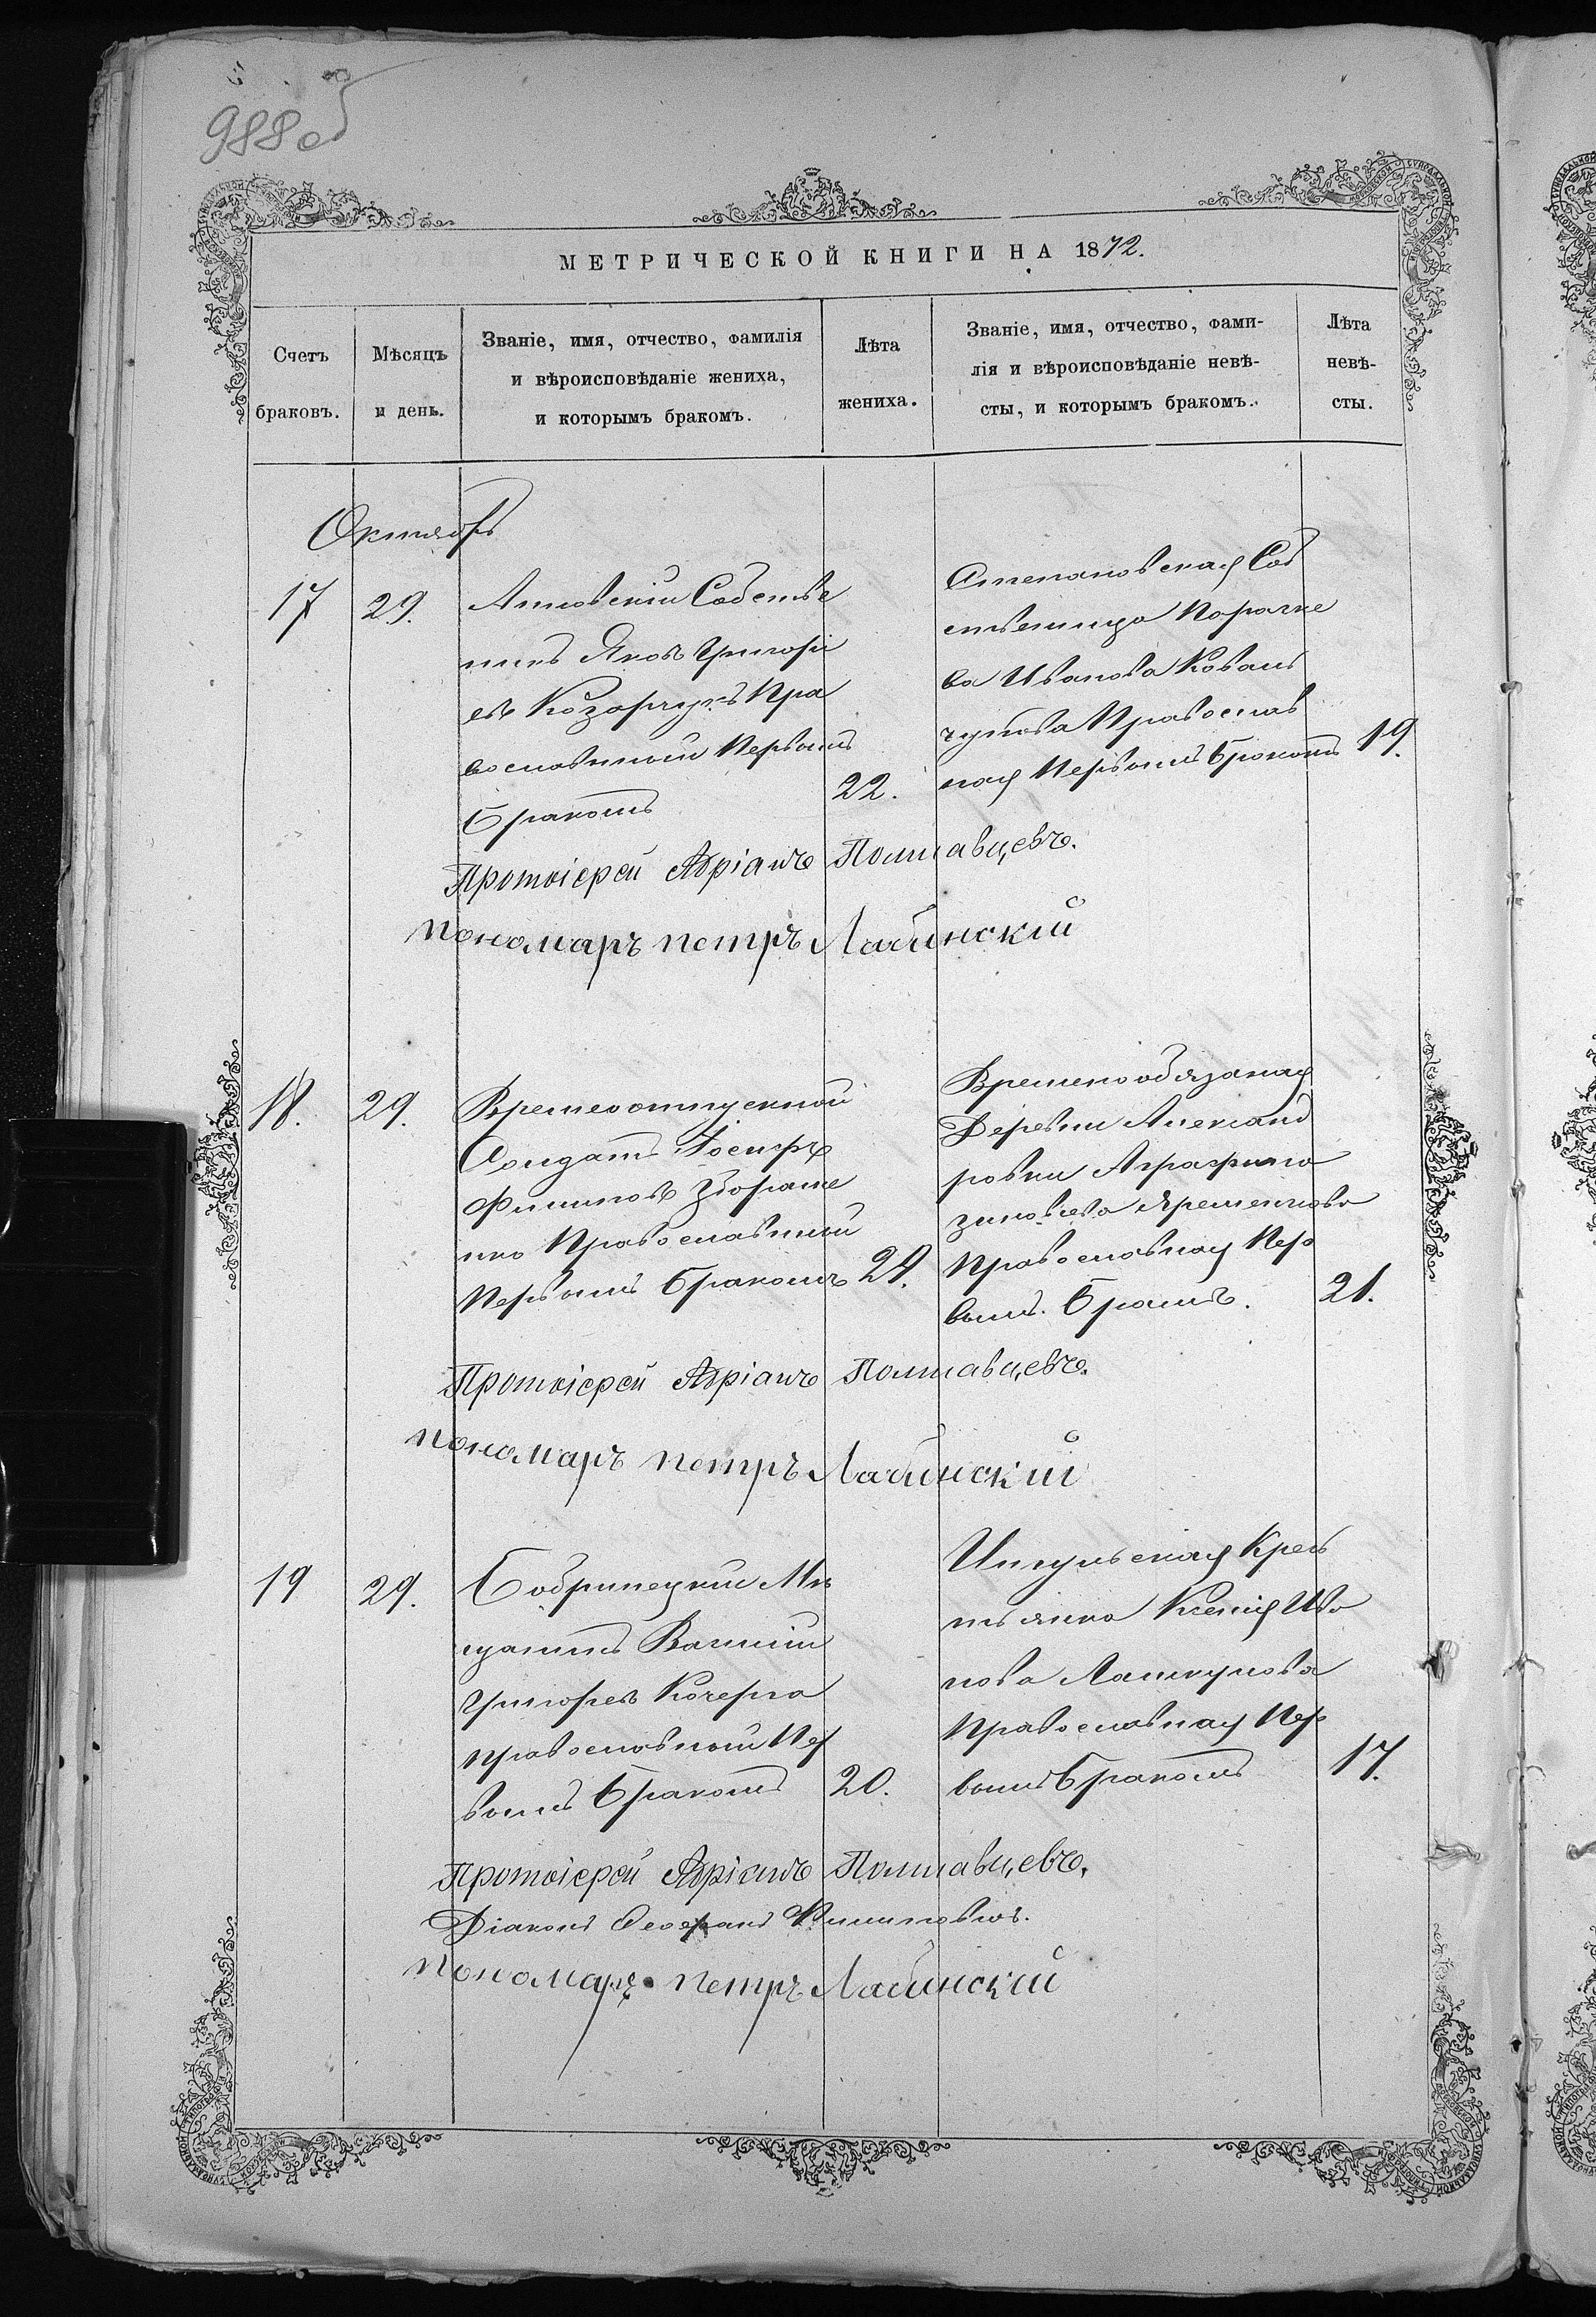 988 об
МЕТРИЧЕСКОЙ КНИГИ НА 1872.
Счетъ браковъ.
Мѣсяцъ и день.
Званіе, имя, отчество, фамилія
и вѣроисповѣданіе жениха,
и которымъ бракомъ.
Лѣта
жениха.
Званіе, имя, отчество, фами-
лія и вѣроисповѣданіе невѣ-
сты, и которымъ бракомъ.
Лѣта
невѣ-
сты.
Октябрь
17
29.
Собстве
никъ Яковъ Григорі
евъ Козарчукъ Пра
вославный Первымъ
Бракомъ
22.
Степановская Соб
ственица Параске
ва Иванова Коваль
чукова Православ
ная Первымъ Бракомъ
19.
Протоіерей Адріанъ Полтавцевъ.
пономаръ петръ Лабинскій
18.
29.
Временоотпускной
Солдатъ
Филиповъ
нко Православный
Первымъ Бракомъ
24.
Временообязаная
Деревни Александ
ровки Аграфина
Зиновьева Яременкова
Православная Пер
вымъ. Бракмъ.
21.
Протоіерей Адріанъ Полтавцевъ.
пономаръ петръ Лабинскій
19
29.
Бобринецкій Мѣ
щанинъ Василій
Григорьевъ Кочерга
православный Пер
вымъ Бракомъ
20.
Ингульская Крес
тьянка Ксенія Ива
нова
Православная Пер
вымъ Бракомъ
17.
Протоіерей Адріанъ Полтавцевъ.
Діаконъ Филиповичъ.
пономаръ петръ Лабинскій